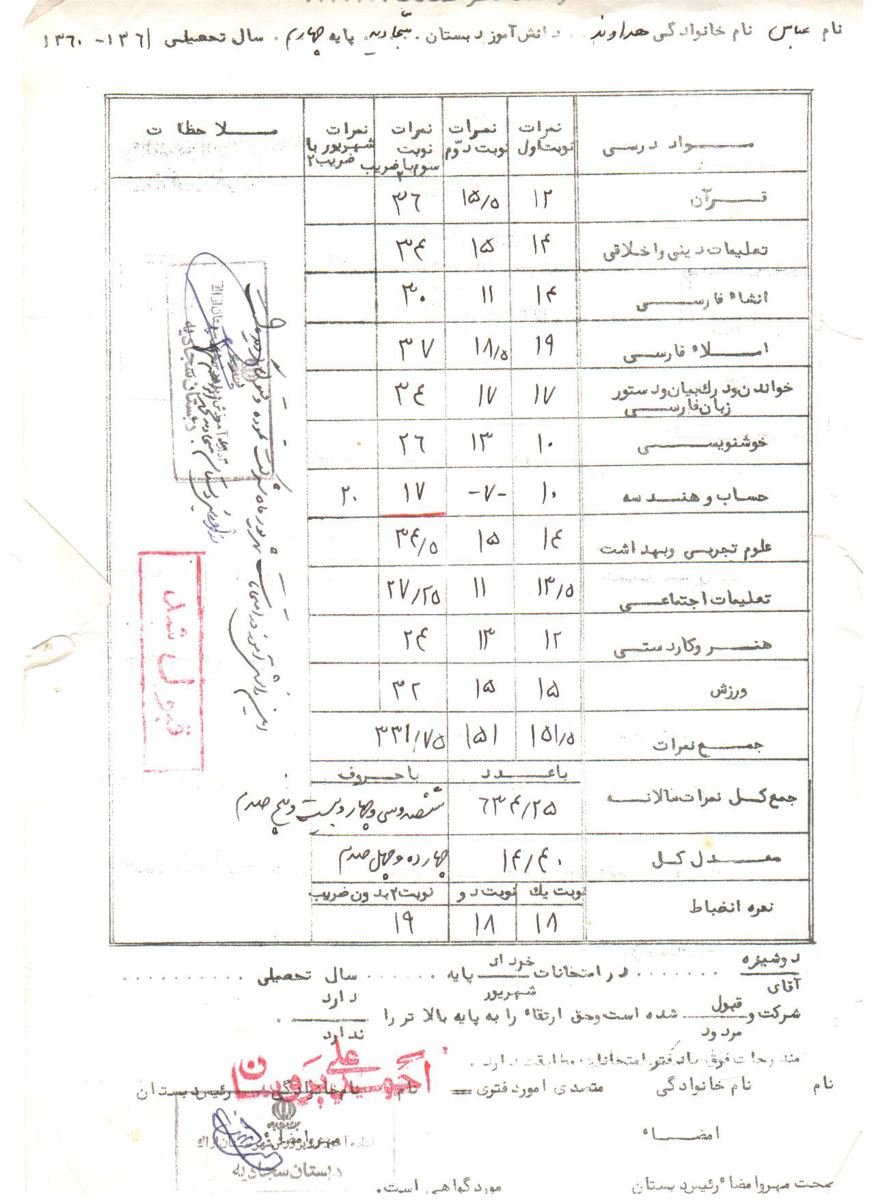 نام عباس نام خانوادگی هداوند دانش‌آموز دبستان سجادیه پایه چهارم سال تحصیلی ۱۳۶۱-۱۳۶۰
مواد درسی نمرات نوبت اول نمرات نوبت دوّم نمرات نوبت سوم با ضریب ۲ نمرات شهریور با ضریب ۲ ملاحظات
قرآن ۱۲ ۱۵/۵ ۳۶
تعلیمات دینی و اخلاقی ۱۴ ۱۵ ۳۴
انشاء فارسی ۱۴ ۱۱ ۳۰
املاء فارسی ۱۹ ۱۸/۵ ۳۷
خواندن و درک بیان و دستور زبان فارسی ۱۷ ۱۷ ۳۴
خوشنویسی ۱۰ ۱۳ ۲۶
حساب و هندسه ۱۰ -۷- ۱۷ ۲۰
علوم تجربی و بهداشت ۱۴ ۱۵ ۳۴/۵
تعلیمات اجتماعی ۱۳/۵ ۱۱ ۲۷/۲۵
هنر و کاردستی ۱۲ ۱۳ ۲۴
ورزش ۱۵ ۱۵ ۳۲
جمع نمرات ۱۵۱/۵ ۱۵۱ ۳۳۱/۷۵
با عدد با حروف
جمع کل نمرات سالانه ۶۳۴/۲۵ ششصد و سی و چهار و بیست و پنج صدم
معدل کل ۱۴/۴۰ چهارده و چهل صدم
نوبت یک نوبت دو نوبت ۳ بدون ضریب
نمره انضباط ۱۸ ۱۸ ۱۹
قبول شد
دبستان سجادیه
دوشیزه
آقای ....... در امتحانات خرداد شهریور پایه ....... سال تحصیلی ..........
شرکت و قبول مردود شده است و حق ارتقاء را به پایه بالاتر را دارد ندارد .
مندرجات فوق با دفتر امتحانات مطابقت دارد .
نام نام خانوادگی متصدی امور دفتری نام نام خانوادگی رئیس دبستان
علی
امضاء مهر و امضاء
اداره آموزش و پرورش شهرستان اراک
دبستان سجادیه
صحت مهر و امضاء رئیس دبستان مورد گواهی است.